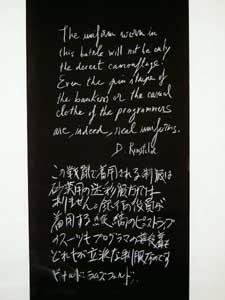 The uniform worn in
this battle will not be only
the desert camouflage!
Even the pin stripe of
the bankers or the casual
clothe of the programmers
are, indeed, real uniforms.
D. Rumsfeld
この戦闘で着用される制服は
砂漠用の迷彩服だけでは
ありません。銀行の役員が
着用する縦縞のピンストライプ
のスーツもプログラマの普段着も
どれもが立派な制服なのです
ドナルド・ラムズフェルド